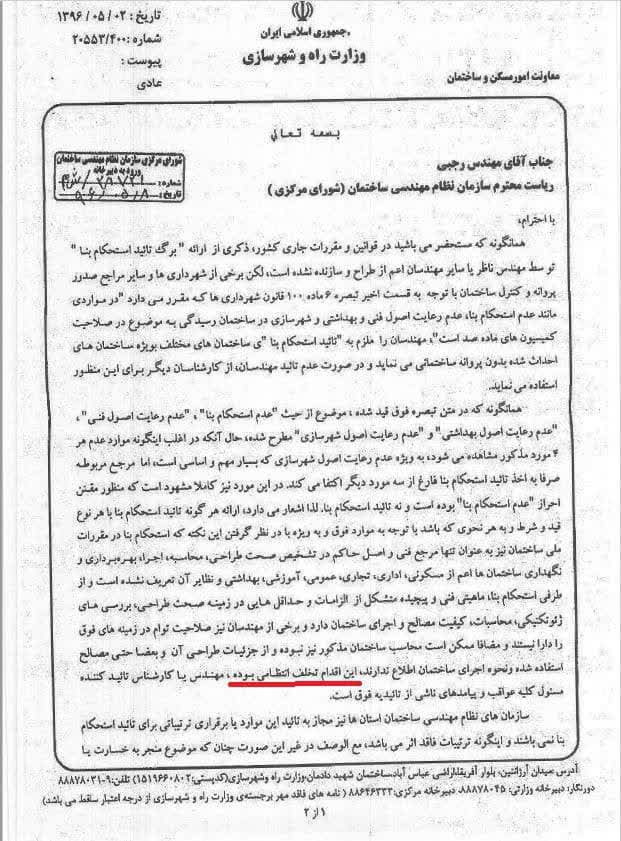 جمهوری اسلامی ایران
وزارت راه و شهرسازی
معاونت امور مسکن و ساختمان
تاریخ : ۱۳۹۶/۰۵/۰۲
شماره: ۲۰۵۵۳/۴۰۰
پیوست :
عادی
بسمه تعالی
شورای مرکزی سازمان نظام مهندسی ساختمان
ورود به دبیرخانه
شماره:
تاریخ:
جناب آقای مهندس رجبی
ریاست محترم سازمان نظام مهندسی ساختمان (شورای مرکزی )
با احترام،
همانگونه که مستحضر می باشید در قوانین و مقررات جاری کشور، ذکری از ارائه " برگ تائید استحکام بنا "
توسط مهندس ناظر یا سایر مهندسان اعم از طراح و سازنده نشده است، لکن برخی از شهرداری ها و سایر مراجع صدور
پروانه و کنترل ساختمان با توجه به قسمت اخیر تبصره ۶ ماده ۱۰۰ قانون شهرداری ها که مقرر می دارد "در مواردی
مانند عدم استحکام بنا، عدم رعایت اصول فنی و بهداشتی و شهرسازی در ساختمان رسیدگی به موضوع در صلاحیت
کمیسیون های ماده صد است"، مهندسان را ملزم به "تائید استحکام بنا "ی ساختمان های مختلف بویژه ساختمان های
احداث شده بدون پروانه ساختمانی می نماید و در صورت عدم تائید مهندسان، از کارشناسان دیگر برای این منظور
استفاده می نماید.
همانگونه که در متن تبصره فوق قید شده ، موضوع از حیث "عدم استحکام بنا" ، "عدم رعایت اصول فنی" ،
"عدم رعایت اصول بهداشتی" و "عدم رعایت اصول شهرسازی" مطرح شده، حال آنکه در اغلب اینگونه موارد عدم هر
۴ مورد مذکور مشاهده می شود، به ویژه عدم رعایت اصول شهرسازی که بسیار مهم و اساسی است، اما مرجع مربوطه
صرفا به اخذ تائید استحکام بنا فارغ از سه مورد دیگر اکتفا می کند. در این مورد نیز کاملا مشهود است که منظور مقنن
احراز "عدم استحکام بنا" بوده است و نه تائید استحکام بنا. لذا اشعار می دارد، ارائه هر گونه تائید استحکام بنا با هر نوع
قید و شرط و به هر نحوی که باشد با توجه به موارد فوق و به ویژه با در نظر گرفتن این نکته که استحکام بنا در مقررات
ملی ساختمان نیز به عنوان تنها مرجع فنی و اصل حاکم در تشخیص صحت طراحی، محاسبه، اجرا، بهره برداری و
نگهداری ساختمان ها اعم از مسکونی، اداری، تجاری، عمومی، آموزشی، بهداشتی و نظایر آن تعریف نشده است و از
طرفی استحکام بنا، ماهیتی فنی و پیچیده متشکل از الزامات و حداقل هایی در زمینه صحت طراحی، بررسی های
ژئوتکنیکی، محاسبات، کیفیت مصالح و اجرای ساختمان دارد و برخی از مهندسان نیز صلاحیت توام در زمینه های فوق
را دارا نیستند و مضافا ممکن است محاسب ساختمان مذکور نیز نبوده و از جزئیات طراحی آن و بعضا حتی مصالح
استفاده شده ونحوه اجرای ساختمان اطلاع ندارند، این اقدام تخلف انتظامی بوده ، مهندس یا کارشناس تائید کننده
مسئول کلیه عواقب و پیامدهای ناشی از تائیدیه فوق است.
سازمان های نظام مهندسی ساختمان استان ها نیز مجاز به تائید این موارد یا برقراری ترتیباتی برای تائید استحکام
بنا نمی باشند و اینگونه ترتیبات فاقد اثر می باشد، مع الوصف در غیر این صورت چنان که موضوع منجر به خسارت یا
آدرس: میدان آرژانتین، بلوار آفریقا، اراضی عباس آباد، ساختمان شهید دادمان، وزارت راه وشهرسازی(کدپستی: ۱۵۱۹۶۶۰۸۰۲) تلفن: ۹-۸۸۸۷۸۰۳۱
دورنگار: دبیرخانه وزارتی: ۸۸۸۷۸۰۴۵، دبیرخانه مرکزی: ۸۸۶۴۶۳۳۳ ( نامه های فاقد مهر برجسته ی وزارت راه و شهرسازی از درجه اعتبار ساقط می باشد)
۱ از ۲